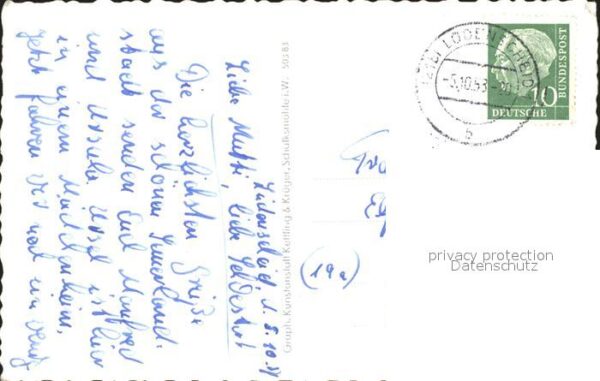 Lüdenscheid, d. 8.10.58
Liebe Mutti, liebe Seldestrot
Die herzlichsten Grüße
aus der schönen Sauerland-
stadt senden Euch Manfred
und Ursula. Ursel ist hier
in einem Mädchenheim.
Jetzt fahren wir noch ein wenig
Graph. Kunstanstalt Kettling & Krüger, Schalksmühle i. W. 505 83
LÜDENSCHEID
-5.10.58-
b
10
DEUTSCHE
BUNDESPOST
(19a)
privacy protection
Datenschutz